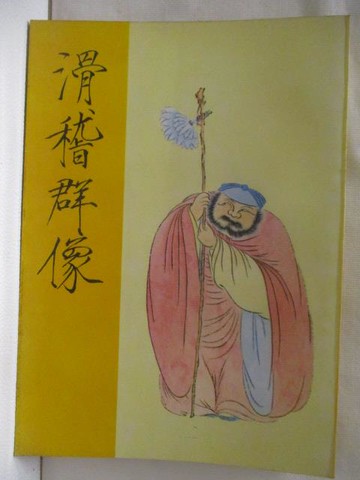 滑稽群像